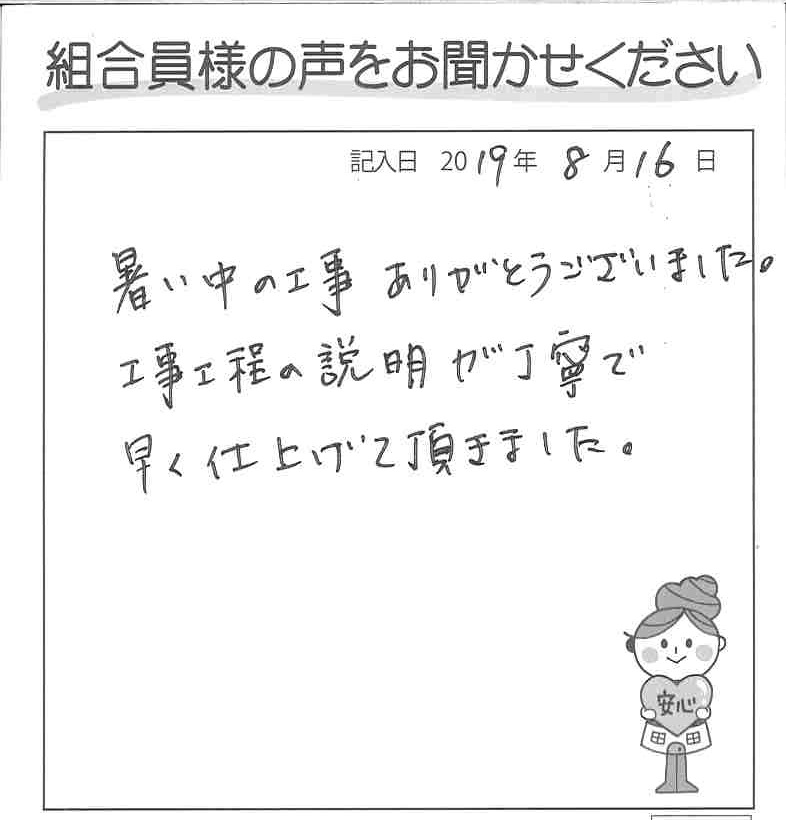 組合員様の声をお聞かせください
記入日 2019年 8月16日
暑い中の工事 ありがとうございました。
工事工程の説明が丁寧で
早く仕上げて頂きました。
安心